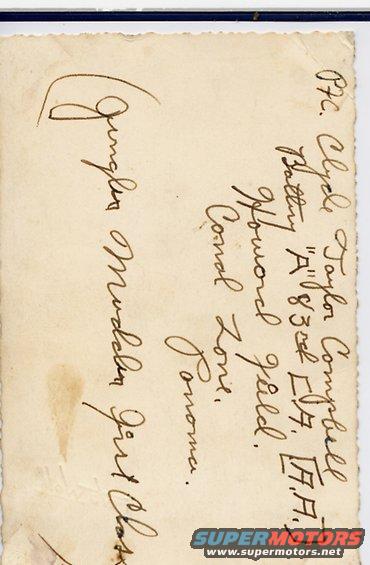 Pfc. Clyde Taylor Campbell
Battery "A" 83rd C.A. [A.A.]
Howard Field.
Canal Zone.
Panama.
(Jungler Mudder First Class
SUPERMOTORS
www.supermotors.net